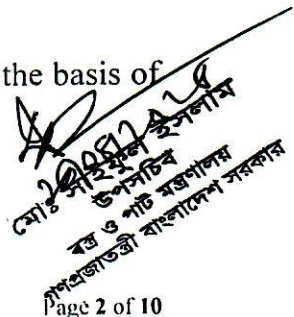 the basis of
মো: সাইফুল ইসলাম
উপসচিব
বস্ত্র ও পাট মন্ত্রণালয়
গণপ্রজাতন্ত্রী বাংলাদেশ সরকার
Page 2 of 10